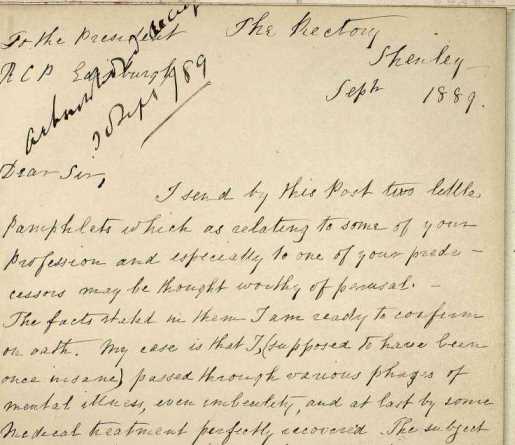 To the President The Rectory
R C P Edinburgh Shenley
Sept 1889.
Acknowledged
Sept 89
Dear Sir,
I send by this Post two little
Pamphlets which as relating to some of your
Profession and especially to one of your prede-
cessors may be thought worthy of perusal. -
The facts stated in them I am ready to confirm
on oath. My case is that I, (supposed to have been
once insane) passed through various phases of
mental illness, even imbecility, and at last by some
Medical treatment perfectly recovered. The subject